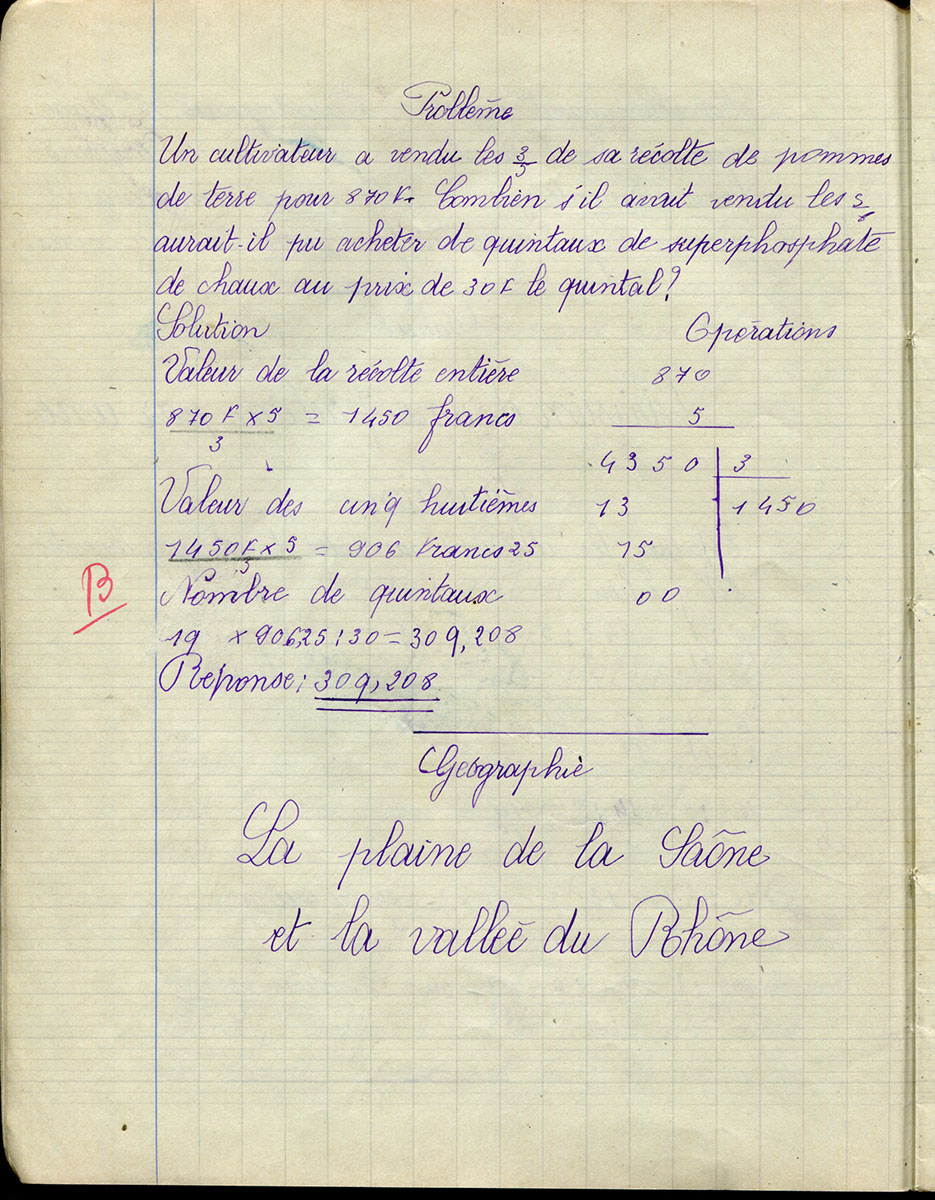 Problème
Un cultivateur a vendu les 3/5 de sa récolte de pommes
de terre pour 870F. Combien s'il avait vendu les 5/8
aurait-il pu acheter de quintaux de superphosphate
de chaux au prix de 30F le quintal?
Solution Opérations
Valeur de la récolte entière 870
870 F x 5 = 1450 francs 5
3
4350 3
Valeur des cinq huitièmes 13 1450
1450F x 5 = 906 francs 25 15
Nombre de quintaux 00
B
1q x 906,25 : 30 = 30q,208
Réponse: 30q,208
Géographie
La plaine de la Saône
et la vallée du Rhône